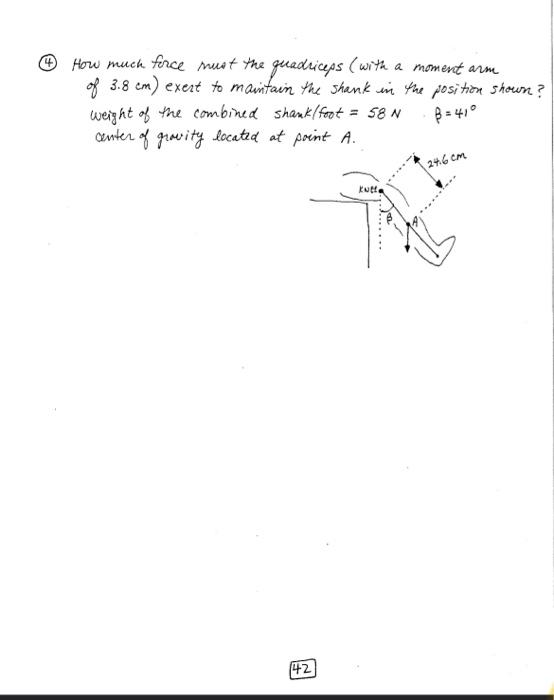 ④ How much force must the quadriceps (with a moment arm
of 3.8 cm) exert to maintain the shank in the position shown?
weight of the combined shank/foot = 58 N . β = 41°
center of gravity located at point A.
24.6 cm
Knee
β
A
42